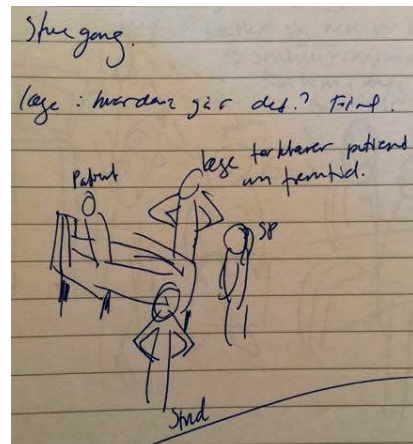 Stuegang.
læge : hvordan går det? Fint.
læge forklarer patient
om fremtid.
Patient
SP
Stud